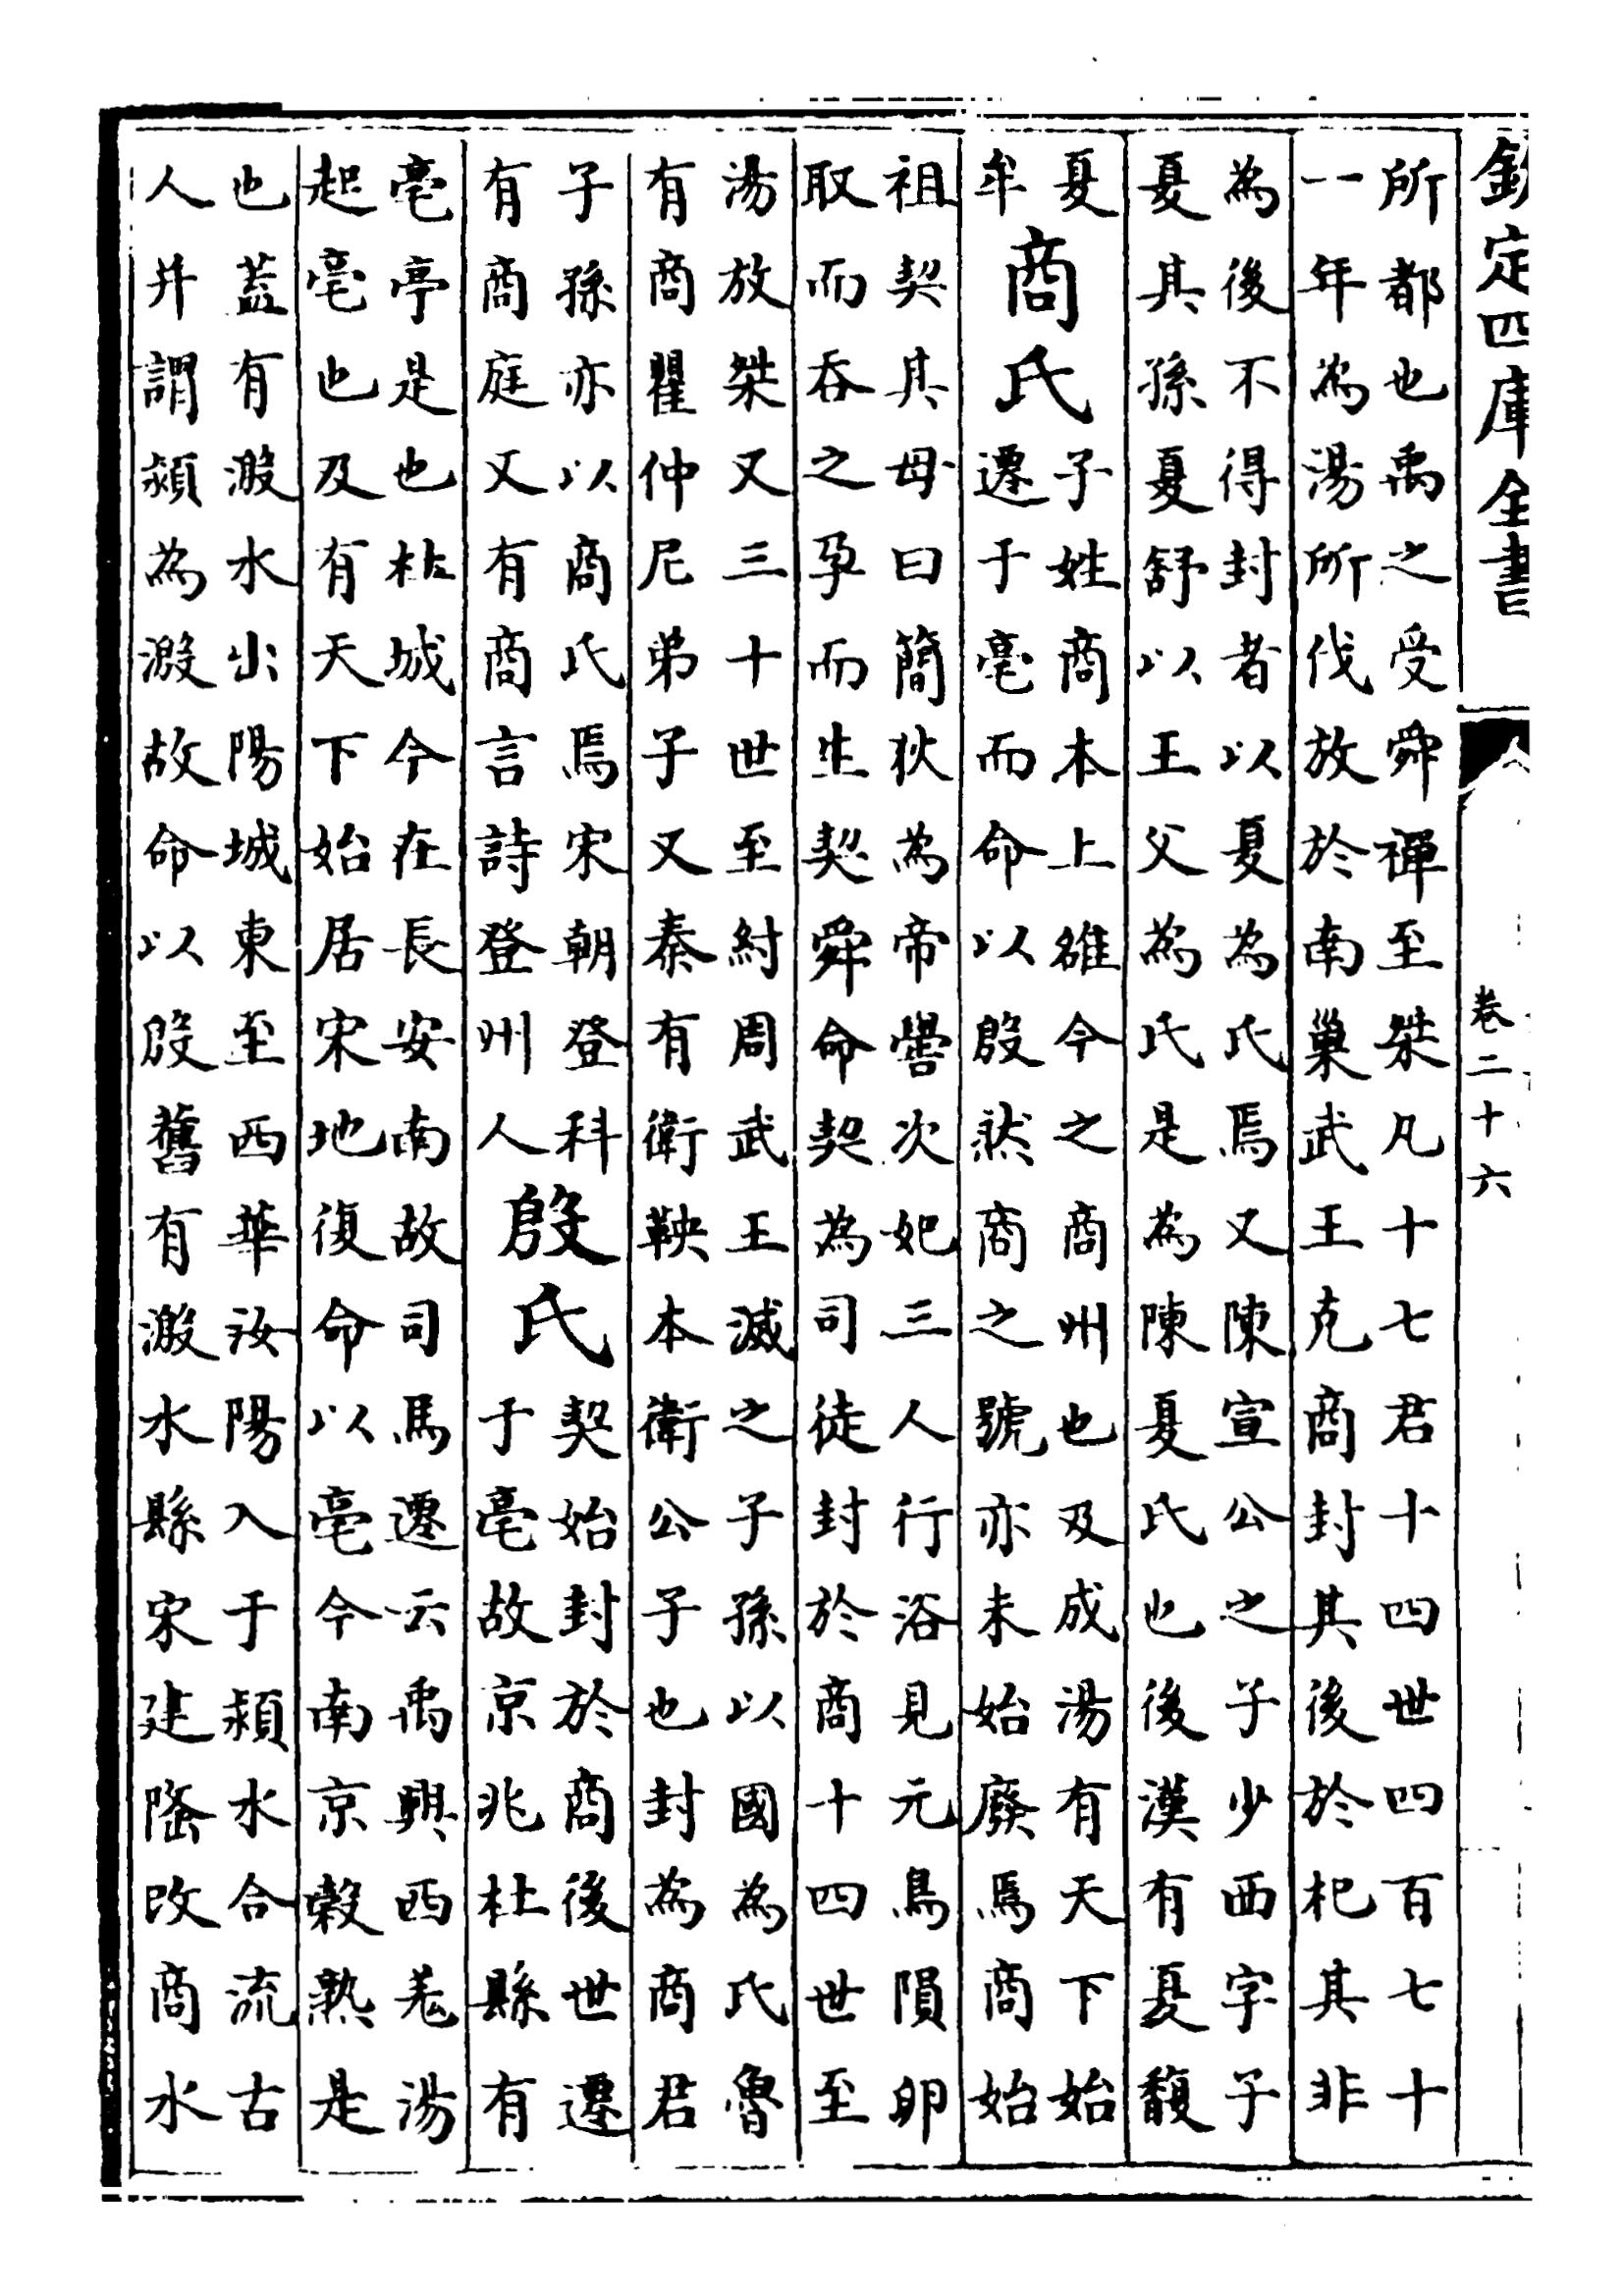 欽定四庫全書
卷二十六
所都也禹之受舜禪至桀凡十七君十四世四百七十
一年為湯所伐放於南巢武王克商封其後於杞其非
為後不得封者以夏為氏焉又陳宣公之子少西字子
夏其孫夏舒以王父為氏是為陳夏氏也後漢有夏馥
夏
牟
商氏
子姓商本上雒今之商州也及成湯有天下始
遷于亳而命以殷然商之號亦未始廢焉商始
祖契其母曰簡狄為帝嚳次妃三人行浴見元鳥隕卵
取而吞之孕而生契舜命契為司徒封於商十四世至
湯放桀又三十世至紂周武王滅之子孫以國為氏魯
有商瞿仲尼弟子又秦有衛鞅本衛公子也封為商君
子孫亦以商氏焉宋朝登科
有商庭又有商言詩登州人
殷氏
契始封於商後世遷
于亳故京兆杜縣有
亳亭是也杜城今在長安南故司馬遷云禹興西羌湯
起亳也及有天下始居宋地復命以亳今南京榖熟是
也蓋有濦水出陽城東至西華汝陽入于潁水合流古
人并謂潁為濦故命以殷舊有濦水縣宋建隆改商水